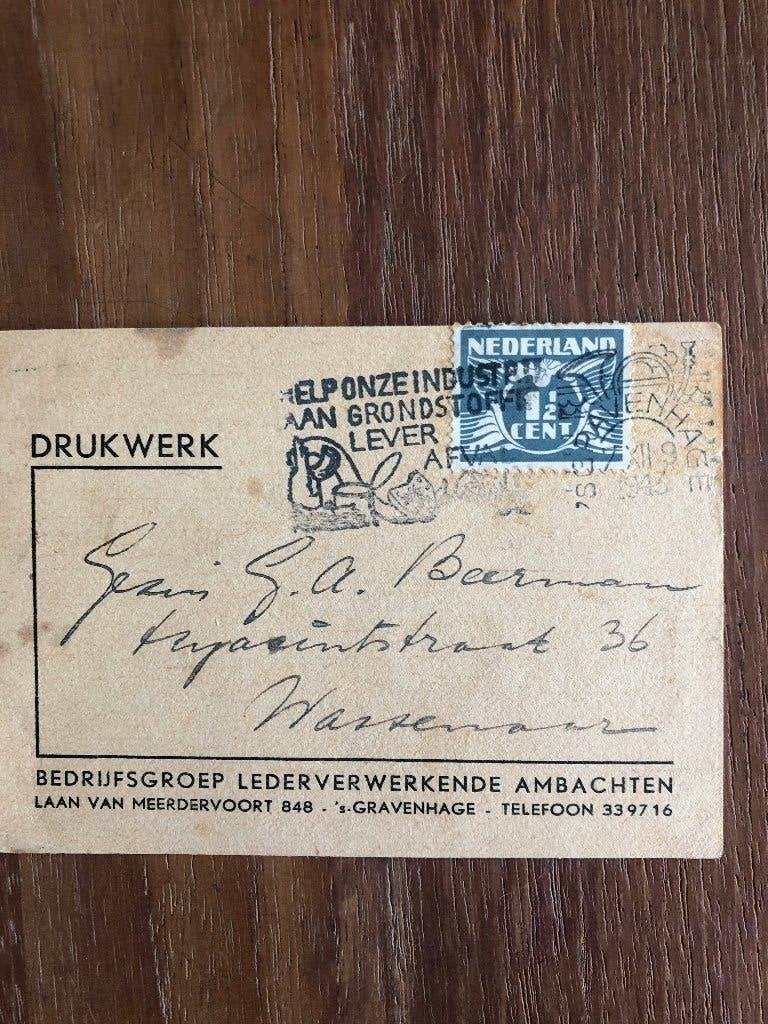 NEDERLAND
1½
CENT
HELP ONZE INDUSTRIE
AAN GRONDSTOFFEN
LEVER
AFVAL
'S GRAVENHAGE
XII 9
1943
DRUKWERK
G. A. Beerman
Hyacintstraat 36
Wassenaar
BEDRIJFSGROEP LEDERVERWERKENDE AMBACHTEN
LAAN VAN MEERDERVOORT 848 - 's-GRAVENHAGE - TELEFOON 339716